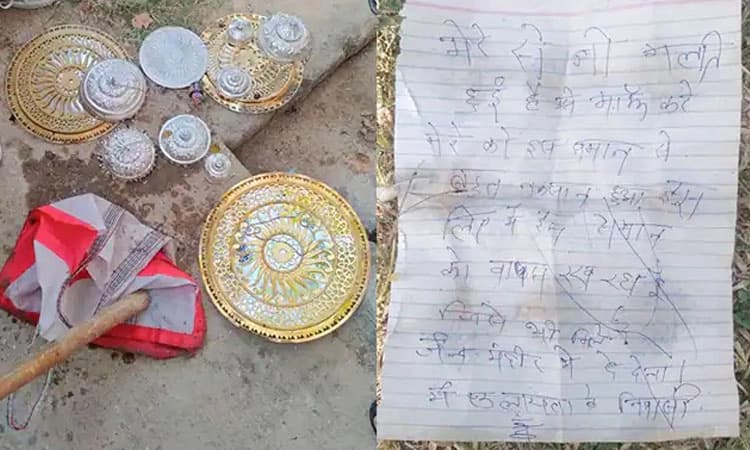 मेरे से जो गलती
हुई है उसे माफ करे
मेरे को इस समान से
बहुत नुकसान हुआ इस
लिए मै इस समान
को वापस रख रहा हूँ
जिसे भी मिले
जैन मंदीर मे दे देना।
में के निवासी